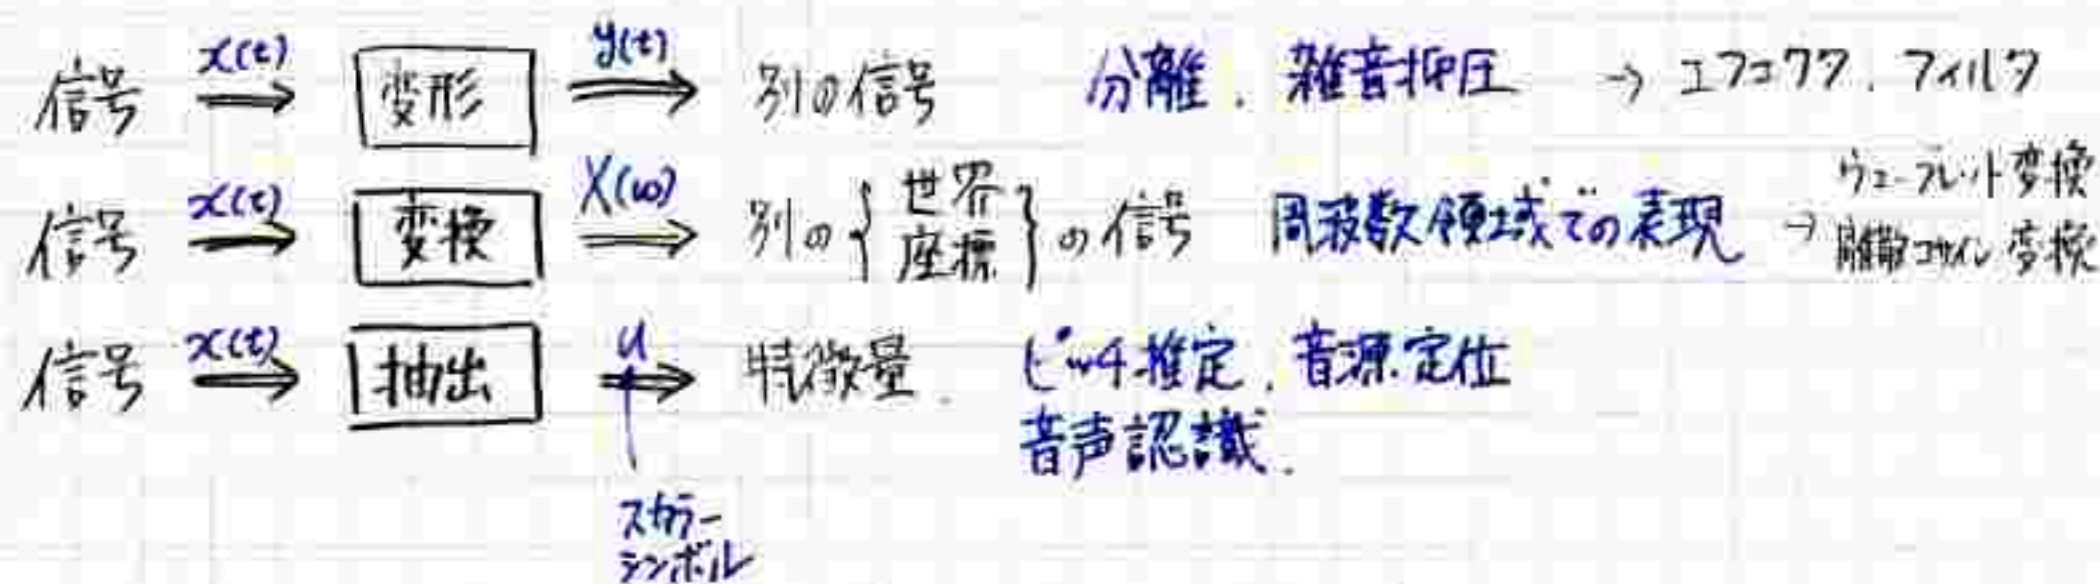 信号 x(t) ⇒ 変形 y(t) ⇒ 別の信号 分離, 雑音抑圧 → エフェクタ, フィルタ
信号 x(t) ⇒ 変換 X(ω) ⇒ 別の { 世界 座標 } の信号 周波数領域での表現 → ウェーブレット変換 離散コサイン変換
信号 x(t) ⇒ 抽出 u ⇒ 特徴量. ピッチ推定, 音源定位
音声認識.
スカラー
シンボル